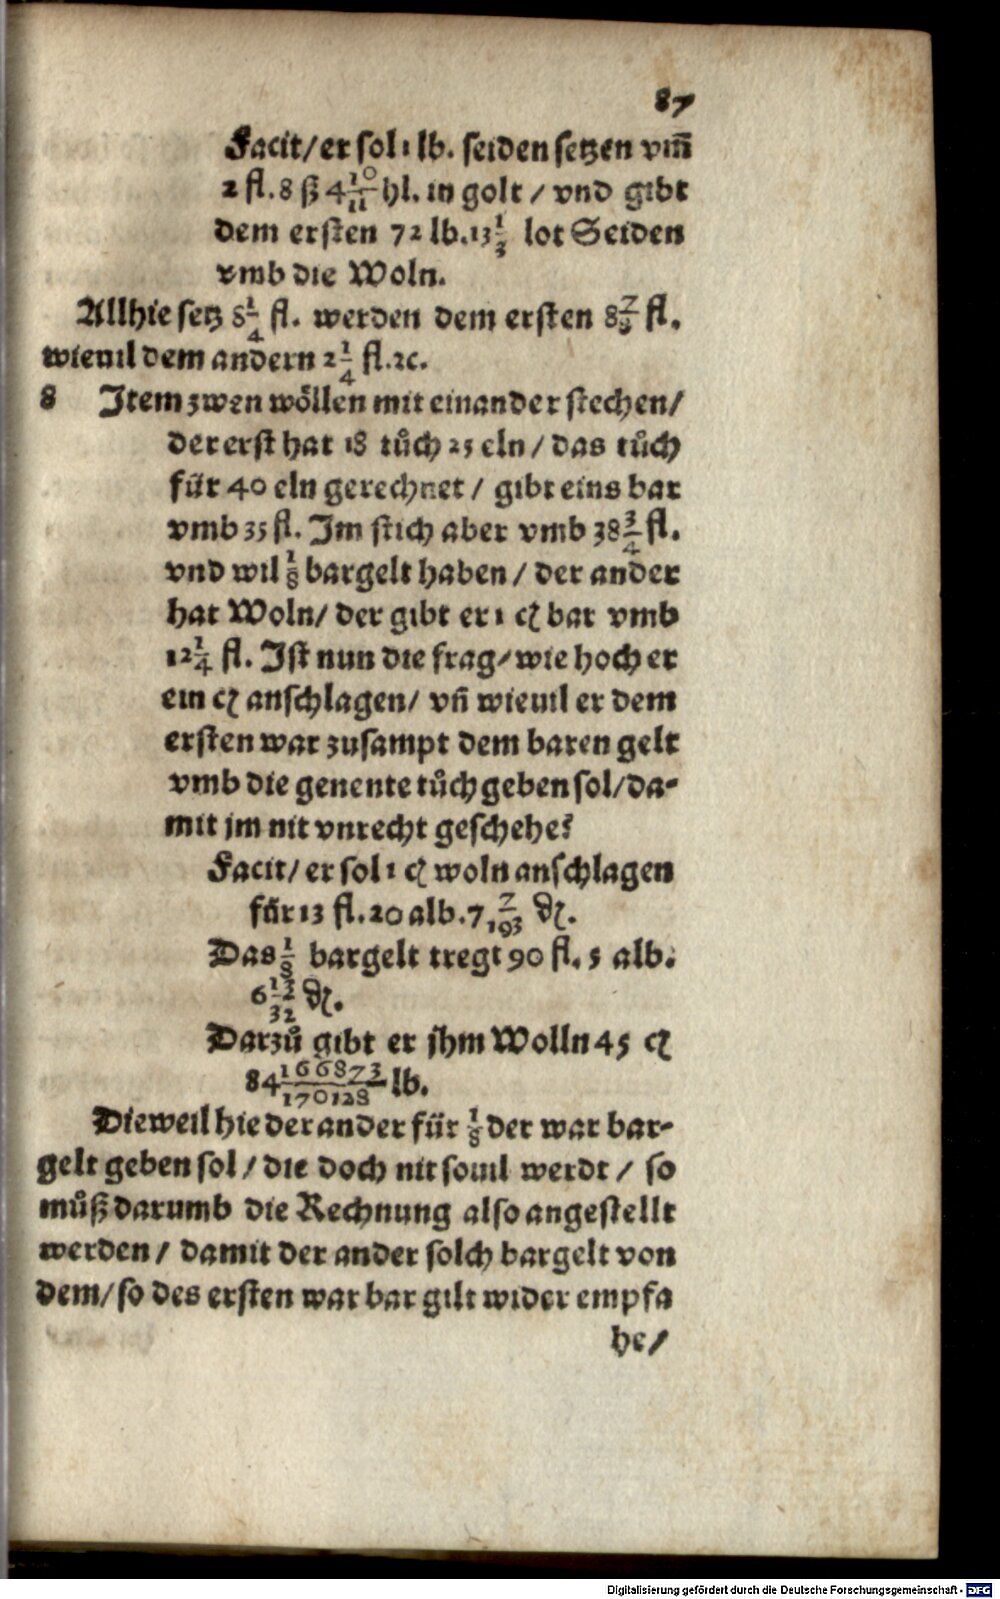 87
Facit/ er sol 1 lb. seiden setzen vm̄
2 fl. 8 ß 4 10/11 hl. in golt / vnd gibt
dem ersten 72 lb. 13 1/3 lot Seiden
vmb die Woln.
Allhie setz 8 1/4 fl. werden dem ersten 8 7/8 fl.
wieuil dem andern 2 1/4 fl. ꝛc.
8 Item zwen wöllen mit einander stechen/
der erst hat 18 tůch 25 eln / das tůch
für 40 eln gerechnet / gibt eins bar
vmb 35 fl. Im stich aber vmb 38 3/4 fl.
vnd wil 1/8 bargelt haben / der ander
hat Woln/ der gibt er 1 cꝫ bar vmb
12 1/4 fl. Ist nun die frag/ wie hoch er
ein cꝫ anschlagen/ vn̄ wieuil er dem
ersten war zusampt dem baren gelt
vmb die genente tůch geben sol/ da-
mit jm nit vnrecht geschehe?
Facit/ er sol 1 cꝫ woln anschlagen
für 13 fl. 20 alb. 7 7/193 ₰.
Das 1/8 bargelt tregt 90 fl. 5 alb.
6 13/32 ₰.
Darzů gibt er jhm Wolln 45 cꝫ
84 166873/170128 lb.
Dieweil hie der ander für 1/8 der war bar-
gelt geben sol / die doch nit souil werdt / so
můß darumb die Rechnung also angestellt
werden / damit der ander solch bargelt von
dem/ so des ersten war bar gilt wider empfa
he/
Digitalisierung gefördert durch die Deutsche Forschungsgemeinschaft - DFG